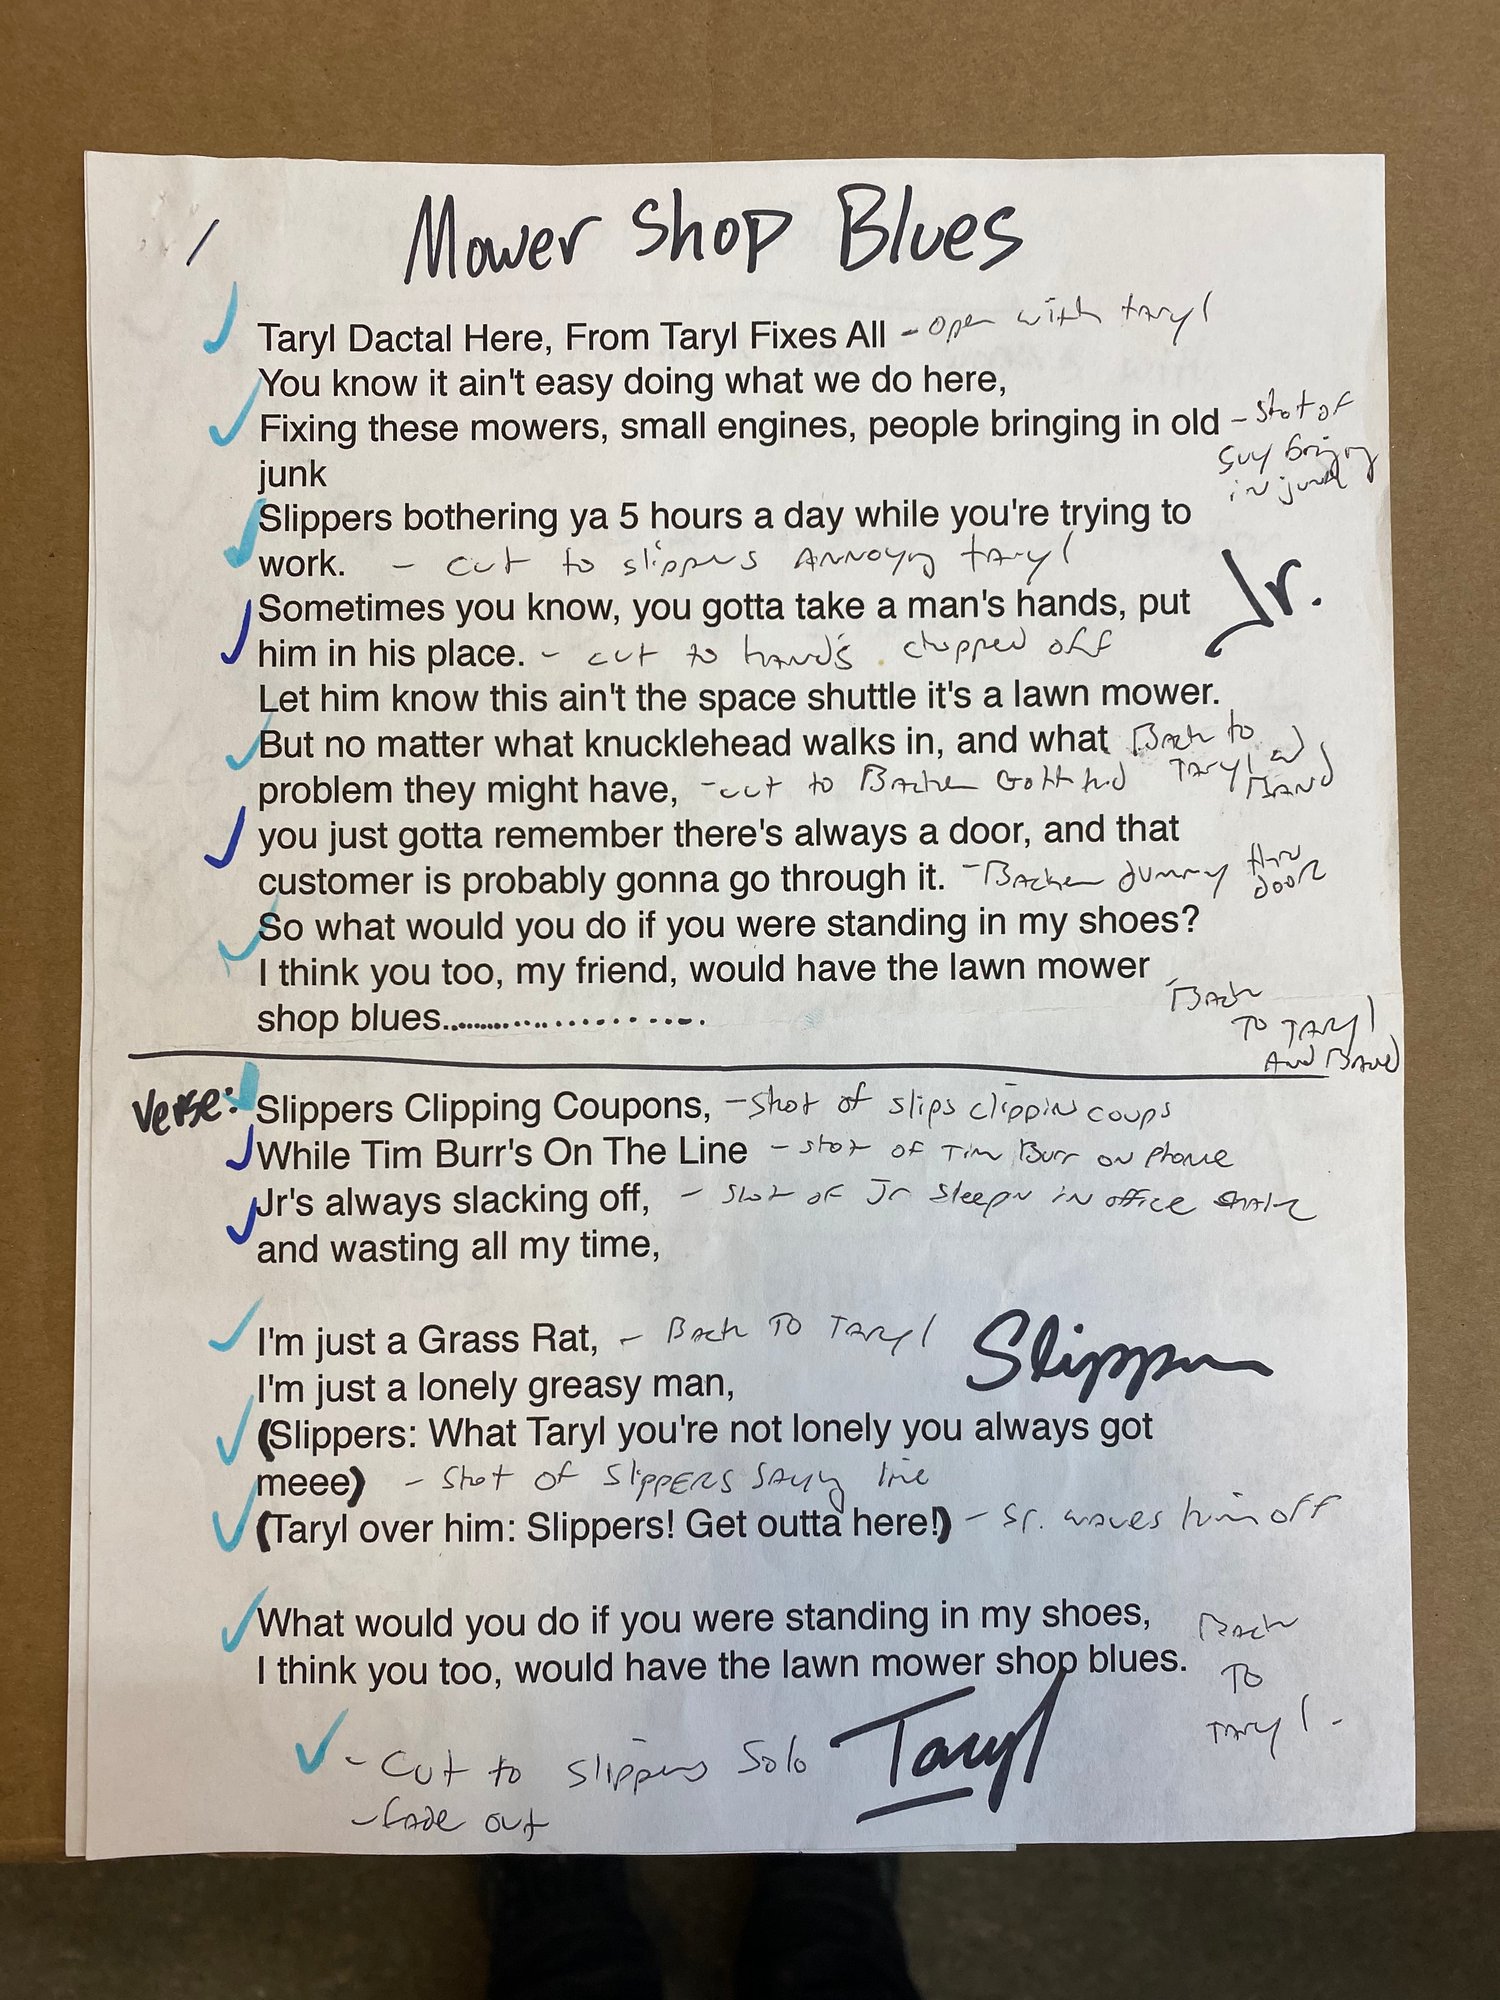 Mower Shop Blues
Taryl Dactal Here, From Taryl Fixes All - open with taryl
You know it ain't easy doing what we do here,
Fixing these mowers, small engines, people bringing in old - shot of
junk guy bringing
in junk
Slippers bothering ya 5 hours a day while you're trying to
work. - cut to slippers Annoying taryl
Jr.
Sometimes you know, you gotta take a man's hands, put
him in his place. - cut to hands chopped off
Let him know this ain't the space shuttle it's a lawn mower.
But no matter what knucklehead walks in, and what Back to
problem they might have, - cut to Taryl and
Band
you just gotta remember there's always a door, and that
customer is probably gonna go through it. - dummy thru
door
So what would you do if you were standing in my shoes?
I think you too, my friend, would have the lawn mower
shop blues.................... Back
To Taryl
And Band
Verse: Slippers Clipping Coupons, - Shot of slips clippin coups
While Tim Burr's On The Line - shot of Tim Burr on phone
Jr's always slacking off, - shot of Jr sleepn in office
and wasting all my time,
I'm just a Grass Rat, - Back To Taryl
Slippers
I'm just a lonely greasy man,
(Slippers: What Taryl you're not lonely you always got
meee) - Shot of Slippers saying line
(Taryl over him: Slippers! Get outta here!) - Sr. waves him off
What would you do if you were standing in my shoes, Back
I think you too, would have the lawn mower shop blues. To
Taryl.
- Cut to slippers Solo Taryl
- fade out